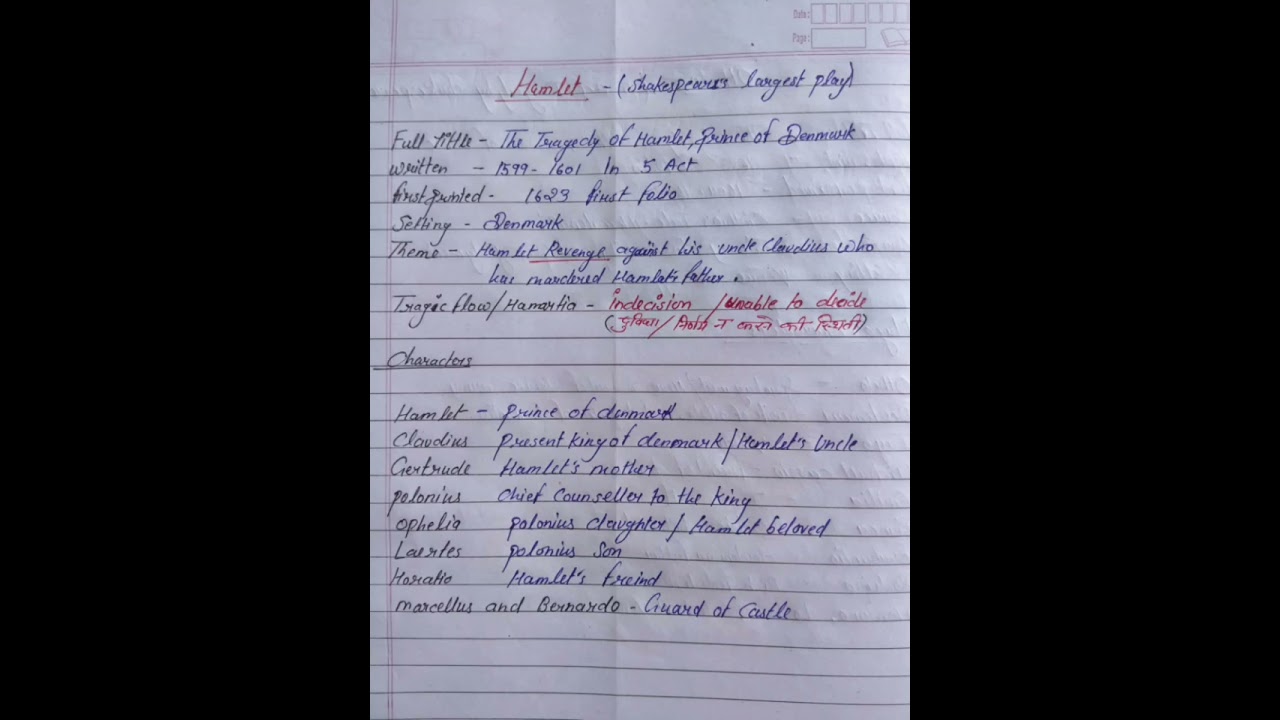 Date:
Page:
Hamlet - (Shakespeare's largest play)
Full Tittle - The Tragedy of Hamlet, Prince of Denmark
written - 1599-1601 In 5 Act
first printed - 1623 first folio
Setting - Denmark
Theme - Hamlet Revenge against his uncle Claudius who
has mardered Hamlet's father.
Tragic flow/Hamartia - indecision / unable to decide
(दुविधा/ निर्णय न करने की स्थिती)
Characters
Hamlet - prince of denmark
Claudius present king of denmark/Hamlet's Uncle
Gertrude Hamlet's mother
polonius chief counseller to the king
ophelia polonius daughter/ Hamlet beloved
Laertes polonius son
Horatio Hamlet's freind
marcellus and Bernardo - Guard of Castle